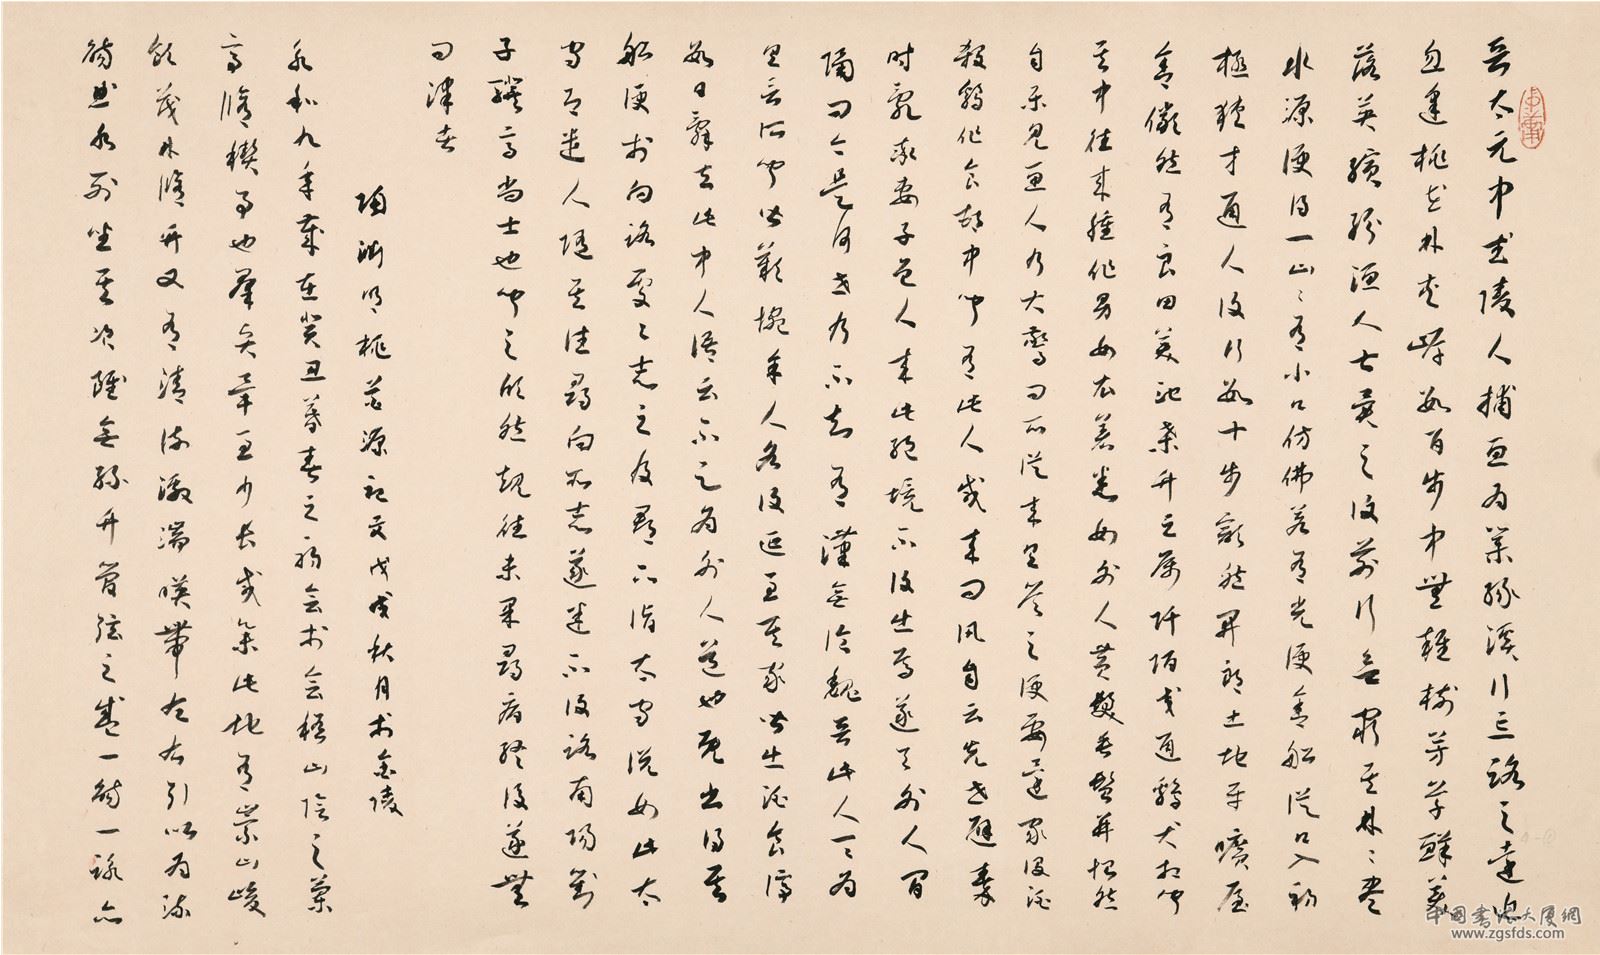 晉太元中武陵人捕魚為業緣溪行忘路之遠近
忽逢桃花林夾岸數百步中無雜樹芳草鮮美
落英繽紛漁人甚異之復前行欲窮其林〻盡
水源便得一山〻有小口仿佛若有光便舍船從口入初
極狹才通人復行數十步豁然開朗土地平曠屋
舍儼然有良田美池桑竹之屬阡陌交通雞犬相聞
其中往來種作男女衣著悉如外人黃髮垂髫並怡然
自樂見魚人乃大驚問所從來具答之便要還家設酒
殺雞作食村中聞有此人咸來問訊自云先世避秦
時亂率妻子邑人來此絕境不復出焉遂與外人間
隔問今是何世乃不知有漢無論魏晉此人一一為
具言所聞皆歎惋餘人各復延至其家皆出酒食停
數日辭去此中人語云不足為外人道也既出得其
船便扶向路處〻志之及郡下詣太守說如此太
守即遣人隨其往尋向所志遂迷不復路南陽劉
子驥高尚士也聞之欣然規往未果尋病終後遂無
問津者
陶淵明桃花源記文戊戌秋月於金陵
永和九年歲在癸丑暮春之初會於會稽山陰之蘭
亭脩禊事也群賢畢至少長咸集此地有崇山峻
領茂林脩竹又有清流激湍暎帶左右引以為流
觴曲水列坐其次雖無絲竹管弦之盛一觴一詠亦
中国书法大厦網
www.zgsfds.com